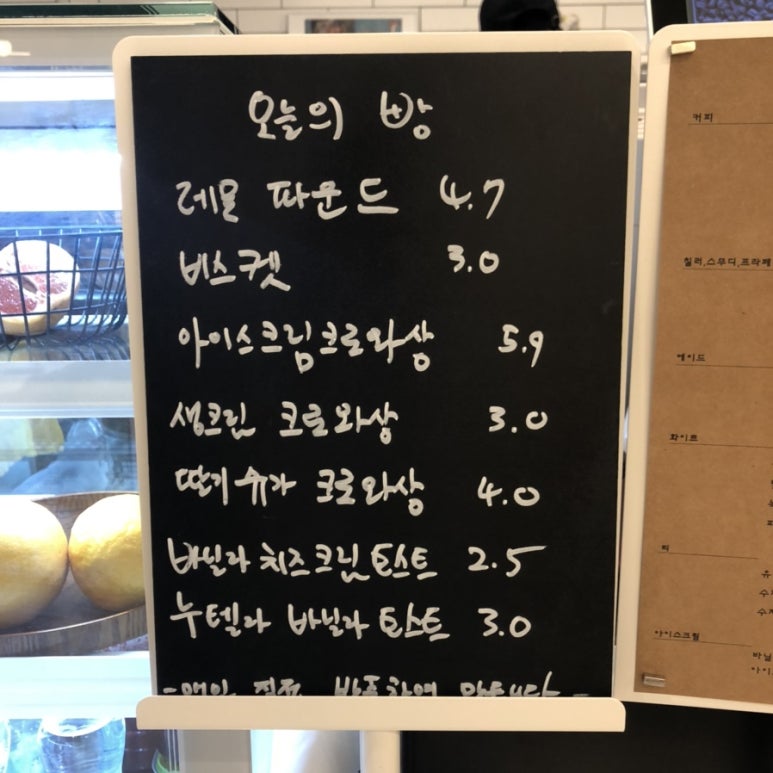 오늘의 빵
레몬 파운드 4.7
비스켓 3.0
아이스크림크로와상 5.9
생크림 크로와상 3.0
딸기슈가 크로와상 4.0
바닐라치즈크림토스트 2.5
누텔라 바닐라토스트 3.0
커피
칠러,스무디,프라페
에이드
화이트
티
아이스크림
바닐